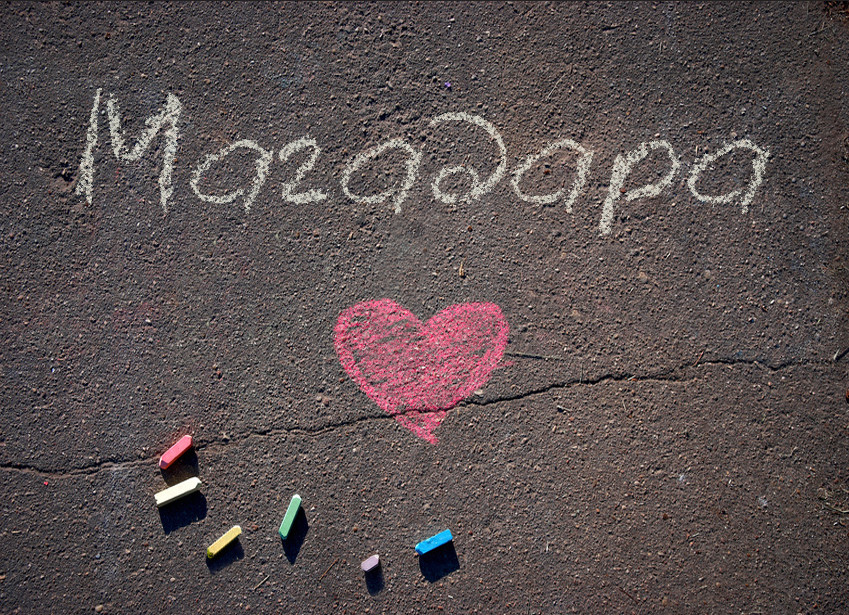 Магадара